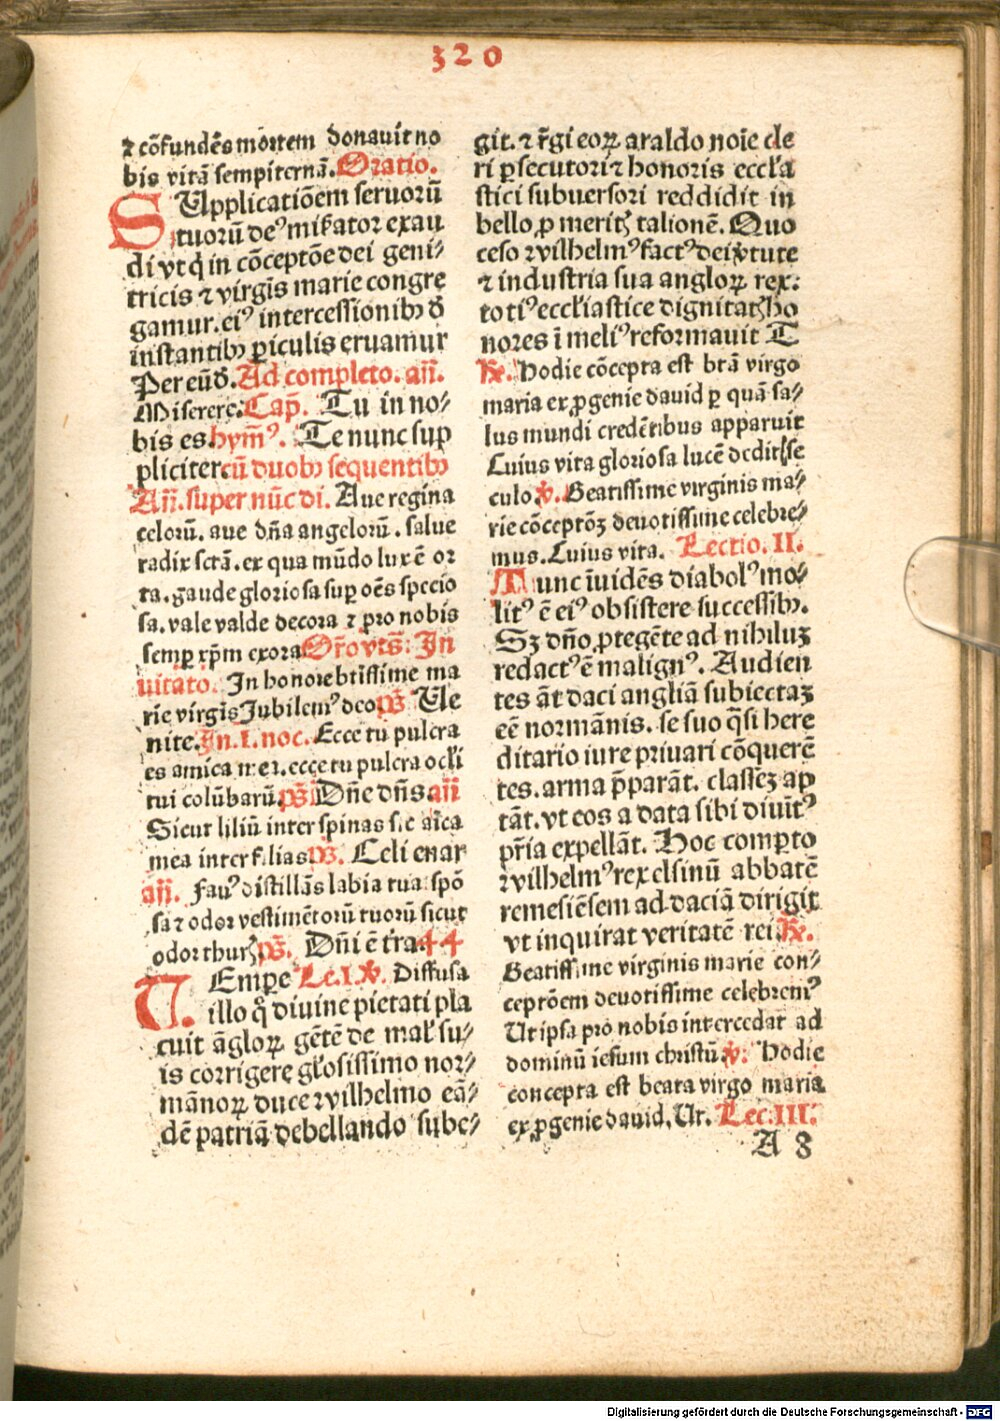 320
⁊ cōfundēs mortem donauit no
bis vitā sempiternā. Oratio.
SUpplicatiōem seruorū
tuorū deꝰ miẜator exau
di vt q̇ in cōceptōe dei geni-
tricis ⁊ virgīs marie congre
gamur. eiꝰ intercessionibꝫ đ
instantibꝫ ꝑiculis eruamur
Per eūđ. Ad completo. aīi.
Miserere. Cap̄. Tu in no-
bis es. hym̄ꝰ. Te nunc sup
pliciter cū duobꝫ sequentibꝫ
Aīi. super nūc di. Aue regina
celorū. aue dn̄a angelorū. salue
radix sctā. ex qua mūdo lux ē or
ta. gaude gloriosa suꝑ oēs specio
sa. vale valde decora ⁊ ꝓro nobis
semꝑ xp̄m exora Or̄o vts̄: In
uitato. In honore btissime ma
rie virgīs Jubilemꝰ deo pš Ue
nite. In. I. noc. Ecce tu pulcra
es amica mea. ecce tu pulcra ocłi
tui colūbarū. pš Dn̄e dn̄s aīi
Sicut liliū inter spinas sic aīca
mea inter filias pš. Celi enar
aīi. Fauꝰ distillās labia tua spō
sa ⁊ odor vestimētorū tuorū sicut
odor thurꝭ pš. Dn̄i ē tr̄a. 44
TEmpe Le. I. v̄. Diffusa
illo q̊ diuine pietati pla
cuit āgloꝝ gētē de mał su-
is corrigere głosissimo nor-
mānoꝝ duce wilhelmo eā-
dē patriā debellando sube-
git. ⁊ r̄gi eoꝝ araldo noīe cle
ri ꝑsecutori ⁊ honoris eccłia
stici subuersori reddidit in
bello ꝓ meritꝭ talionē. Quo
ceso wilhelmꝰ factꝰ dei v̇tute
⁊ industria sua angloꝝ rex:
totiꝰ eccłiastice dignitatꝭ ho
nores ī meliꝰ reformauit T
R̄. Hodie cōcepta est btā virgo
maria ex ꝓgenie dauid ꝑ quā sa-
lus mundi credētibus apparuit
Cuius vita gloriosa lucē dedit se
culo v̄. Beatissime virginis ma-
rie cōceptōꝫ deuotissime celebre-
mus. Cuius vita. Lectio. II.
Tunc īuidēs diabolꝰ mo-
litꝰ ē eiꝰ obsistere successibꝫ.
Sꝫ dn̄o ꝓtegēte ad nihiluꝫ
redactꝰ ē malignꝰ. Audien
tes āt daci angliā subiectaꝫ
eē normānis. se suo q̄si here
ditario iure priuari cōquerē
tes. arma p̄parāt. classeꝫ ap
tāt. vt eos a data sibi diuītꝰ
pr̄ia expellāt. Hoc comꝑto
wilhelmꝰ rex elsinū abbatē
remesiēsem ad daciā dirigit
vt inquirat veritatē rei. R̄.
Beatissime virginis marie con-
ceptōem deuotissime celebremꝰ
Ut ipsa pro nobis intercedat ad
dominū iesum christū v̄: Hodie
concepta est beata virgo maria
ex ꝓgenie dauid. Ut. Lec. III.
A 8
Digitalisierung gefördert durch die Deutsche Forschungsgemeinschaft - DFG